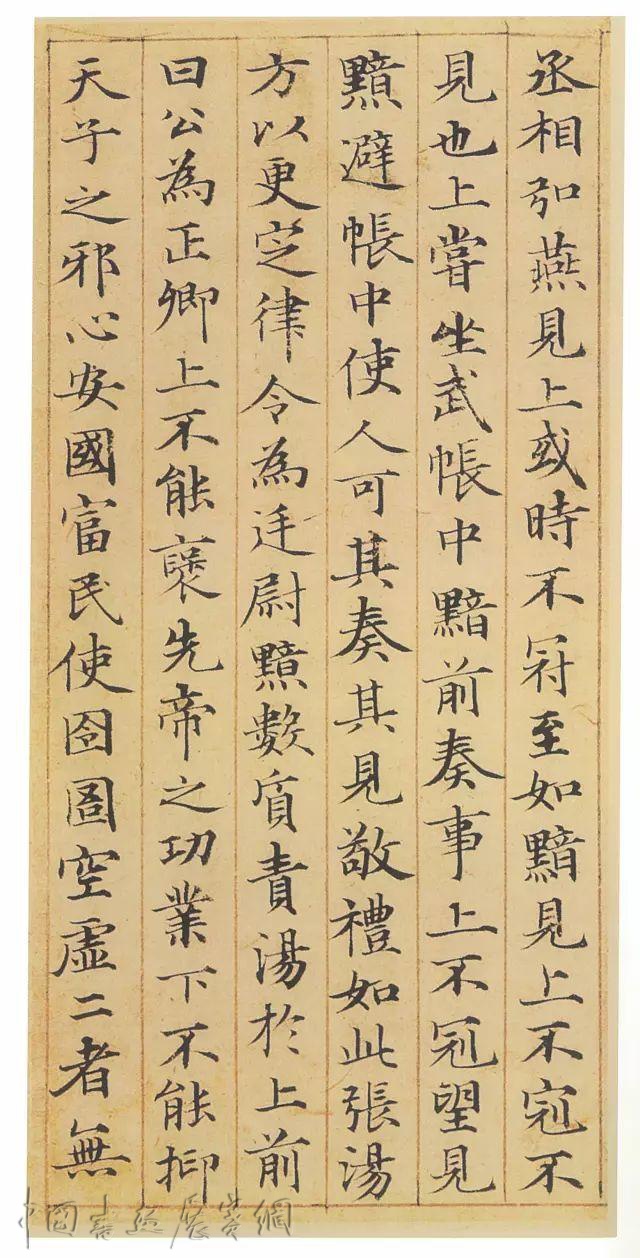 丞相弘燕見上或時不冠至如黯見上不冠不
見也上嘗坐武帳中黯前奏事上不冠望見
黯避帳中使人可其奏其見敬禮如此張湯
方以更定律令為廷尉黯數質責湯於上前
曰公為正卿上不能褒先帝之功業下不能抑
天子之邪心安國富民使囹圄空虛二者無
中國書法展賽網